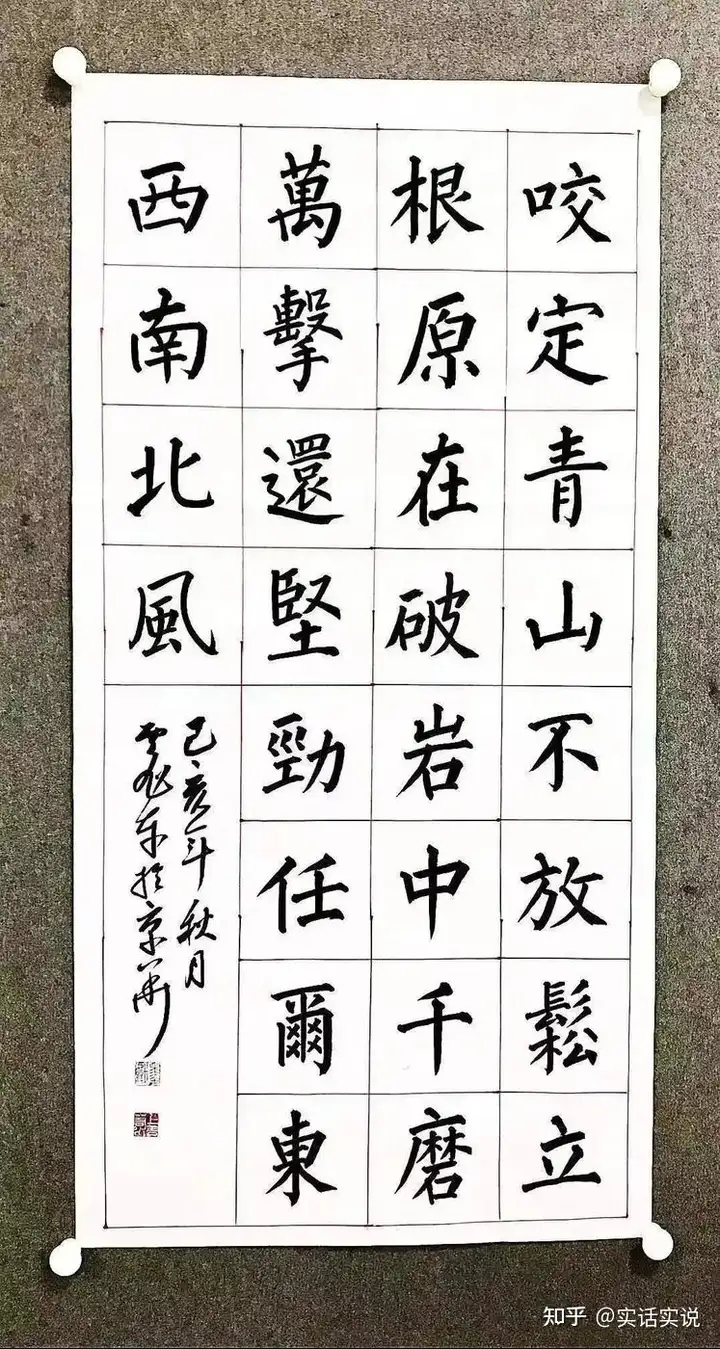 咬定青山不放鬆立
根原在破岩中千磨
萬擊還堅勁任爾東
西南北風
己亥年秋月
東於京華
知乎 @实话实说